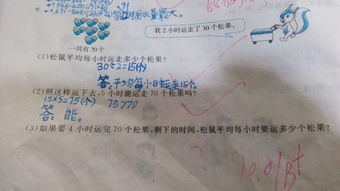 水量最大。
我2小时运走了30个松果。
一共有70个
(1)松鼠平均每小时运走多少个松果?
30÷2=15(个)
答:平均每小时运走15个
(2)照这样运下去,5小时能运走70个松果吗?
15×5=75(个) 75>70
答:能。
(3)如果要4小时运完70个松果,剩下的时间,松鼠平均每小时要运多少个松果?
?